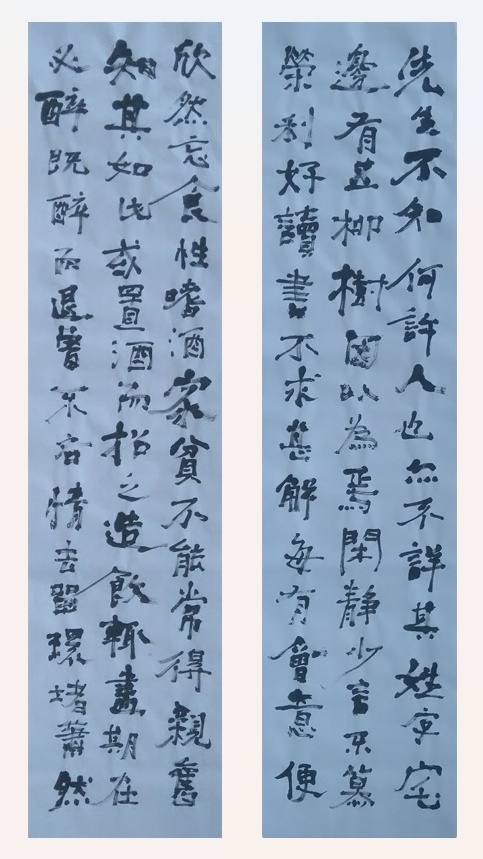 先生不知何許人也亦不詳其姓字宅
邊有五柳樹因以為焉閑靜少言不慕
榮利好讀書不求甚解每有會意便
欣然忘食性嗜酒家貧不能常得親舊
知其如此或置酒而招之造飲輒盡期在
必醉既醉而退曾不吝情去留環堵蕭然